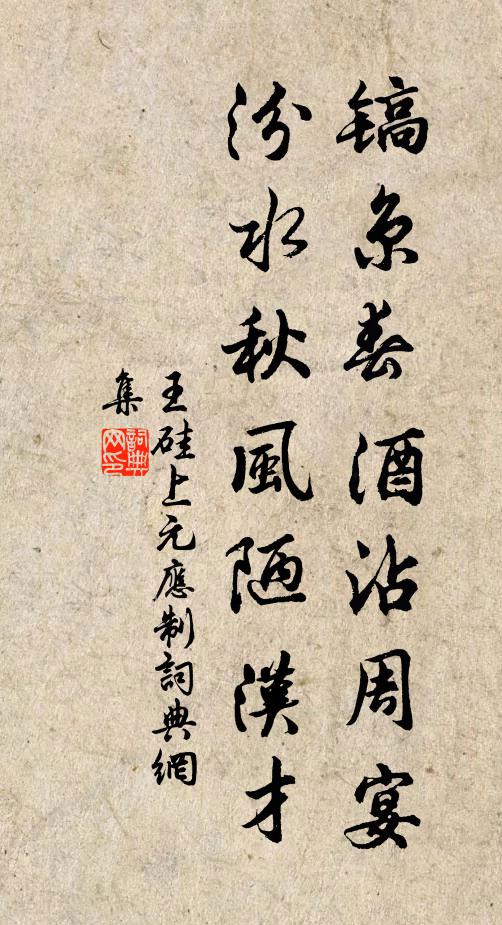 镐京春酒沾周宴
汾水秋風陋漢才
王硅上元應制詞典網
集
詞典网印